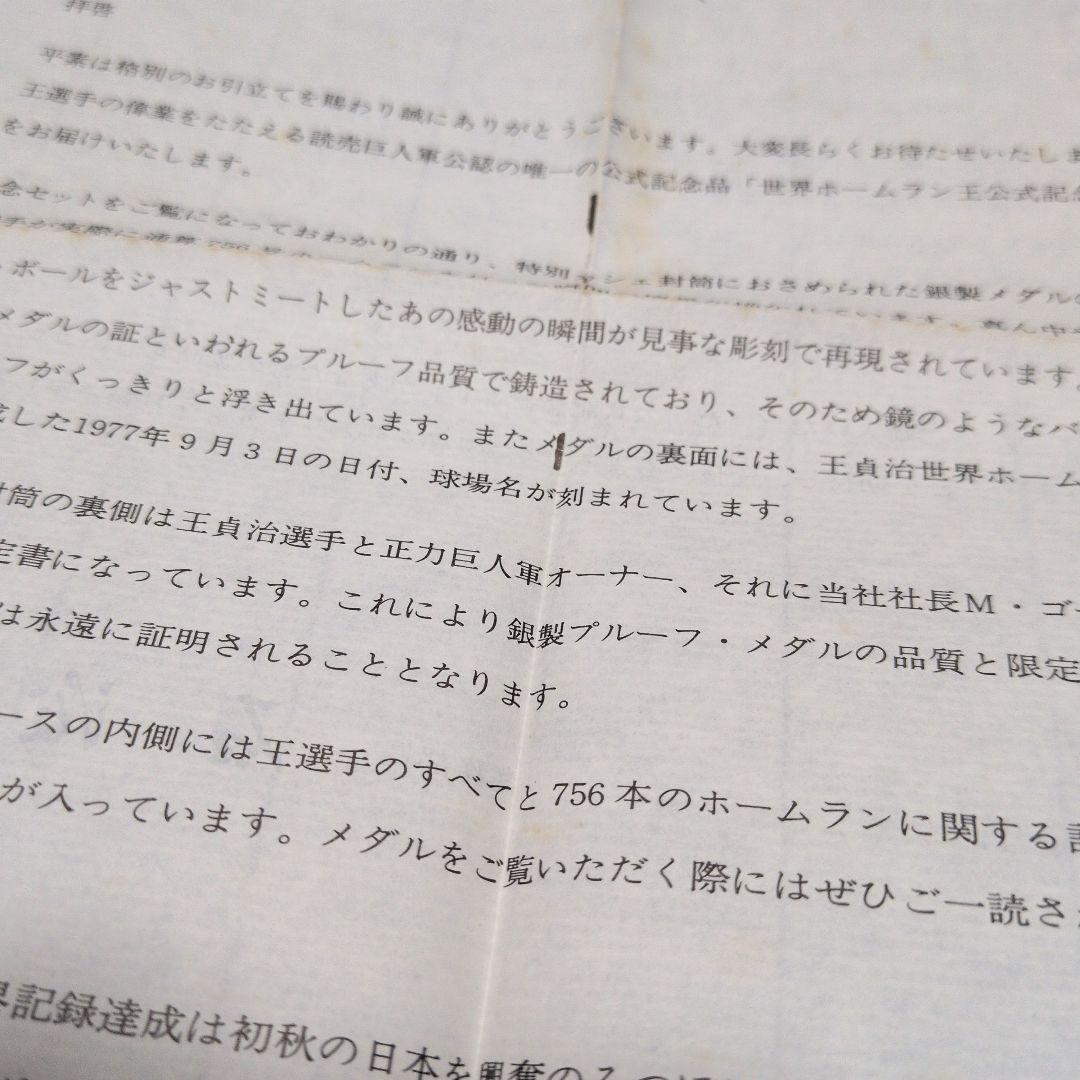 拝啓
平素は格別のお引立てを賜わり誠にありがとうございます。大変長らくお待たせいたしま
王選手の偉業をたたえる読売巨人軍公認の唯一の公式記念品「世界ホームラン王公式記念
をお届けいたします。
念セットをご覧になっておわかりの通り、特別マシェ封筒におさめられた銀製メダルの
756
ボールをジャストミートしたあの感動の瞬間が見事な彫刻で再現されています。
メダルの証といわれるプルーフ品質で鋳造されており、そのため鏡のようなバ
フがくっきりと浮き出ています。またメダルの裏面には、王貞治世界ホーム
した1977年9月3日の日付、球場名が刻まれています。
封筒の裏側は王貞治選手と正力巨人軍オーナー、それに当社社長M・ゴ
定書になっています。これにより銀製プルーフ・メダルの品質と限定
は永遠に証明されることとなります。
ースの内側には王選手のすべてと756本のホームランに関する
が入っています。メダルをご覧いただく際にはぜひご一読さ
界記録達成は初秋の日本を興奮の